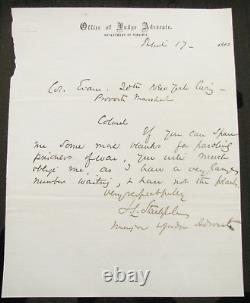 Office of Judge Advocate,
DEPARTMENT OF VIRGINIA
17 - 1865
Col. Evans 20th New York Cavy -
Provost Marshal
Colonel
If you can spare
me some more blanks for paroling
prisoners of war, you will much
oblige me, as I have a very large
number waiting, & have not the blanks
very respectfully
Major & Judge Advocate